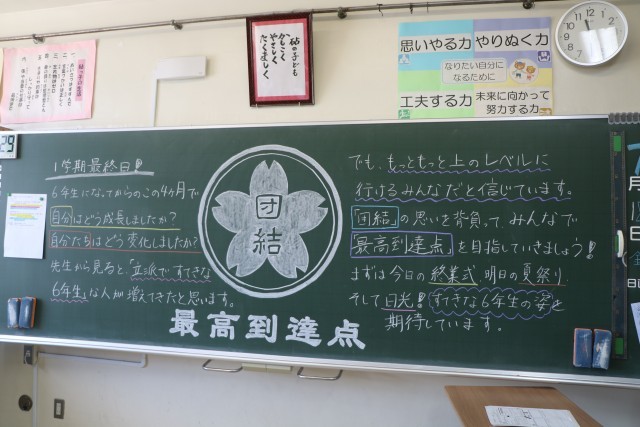 砧の子ども
かしこく
やさしく
たくましく
思いやる力
やりぬく力
なりたい自分に
なるために
工夫する力
未来に向かって
努力する力
29
1学期最終日!!
6年生になってからのこの4ヶ月で
自分はどう成長しましたか?
自分たちはどう変化しましたか?
先生から見ると、「立派ですてきな
6年生」な人が増えてきたと思います。
団結
最高到達点
でも、もっともっと上のレベルに
行けるみんなだと信じています。
「団結」の思いを背負って、みんなで
「最高到達点」を目指していきましょう!!
まずは今日の終業式、明日の夏祭り
そして日光!!すてきな6年生の姿を
期待しています。
月
日